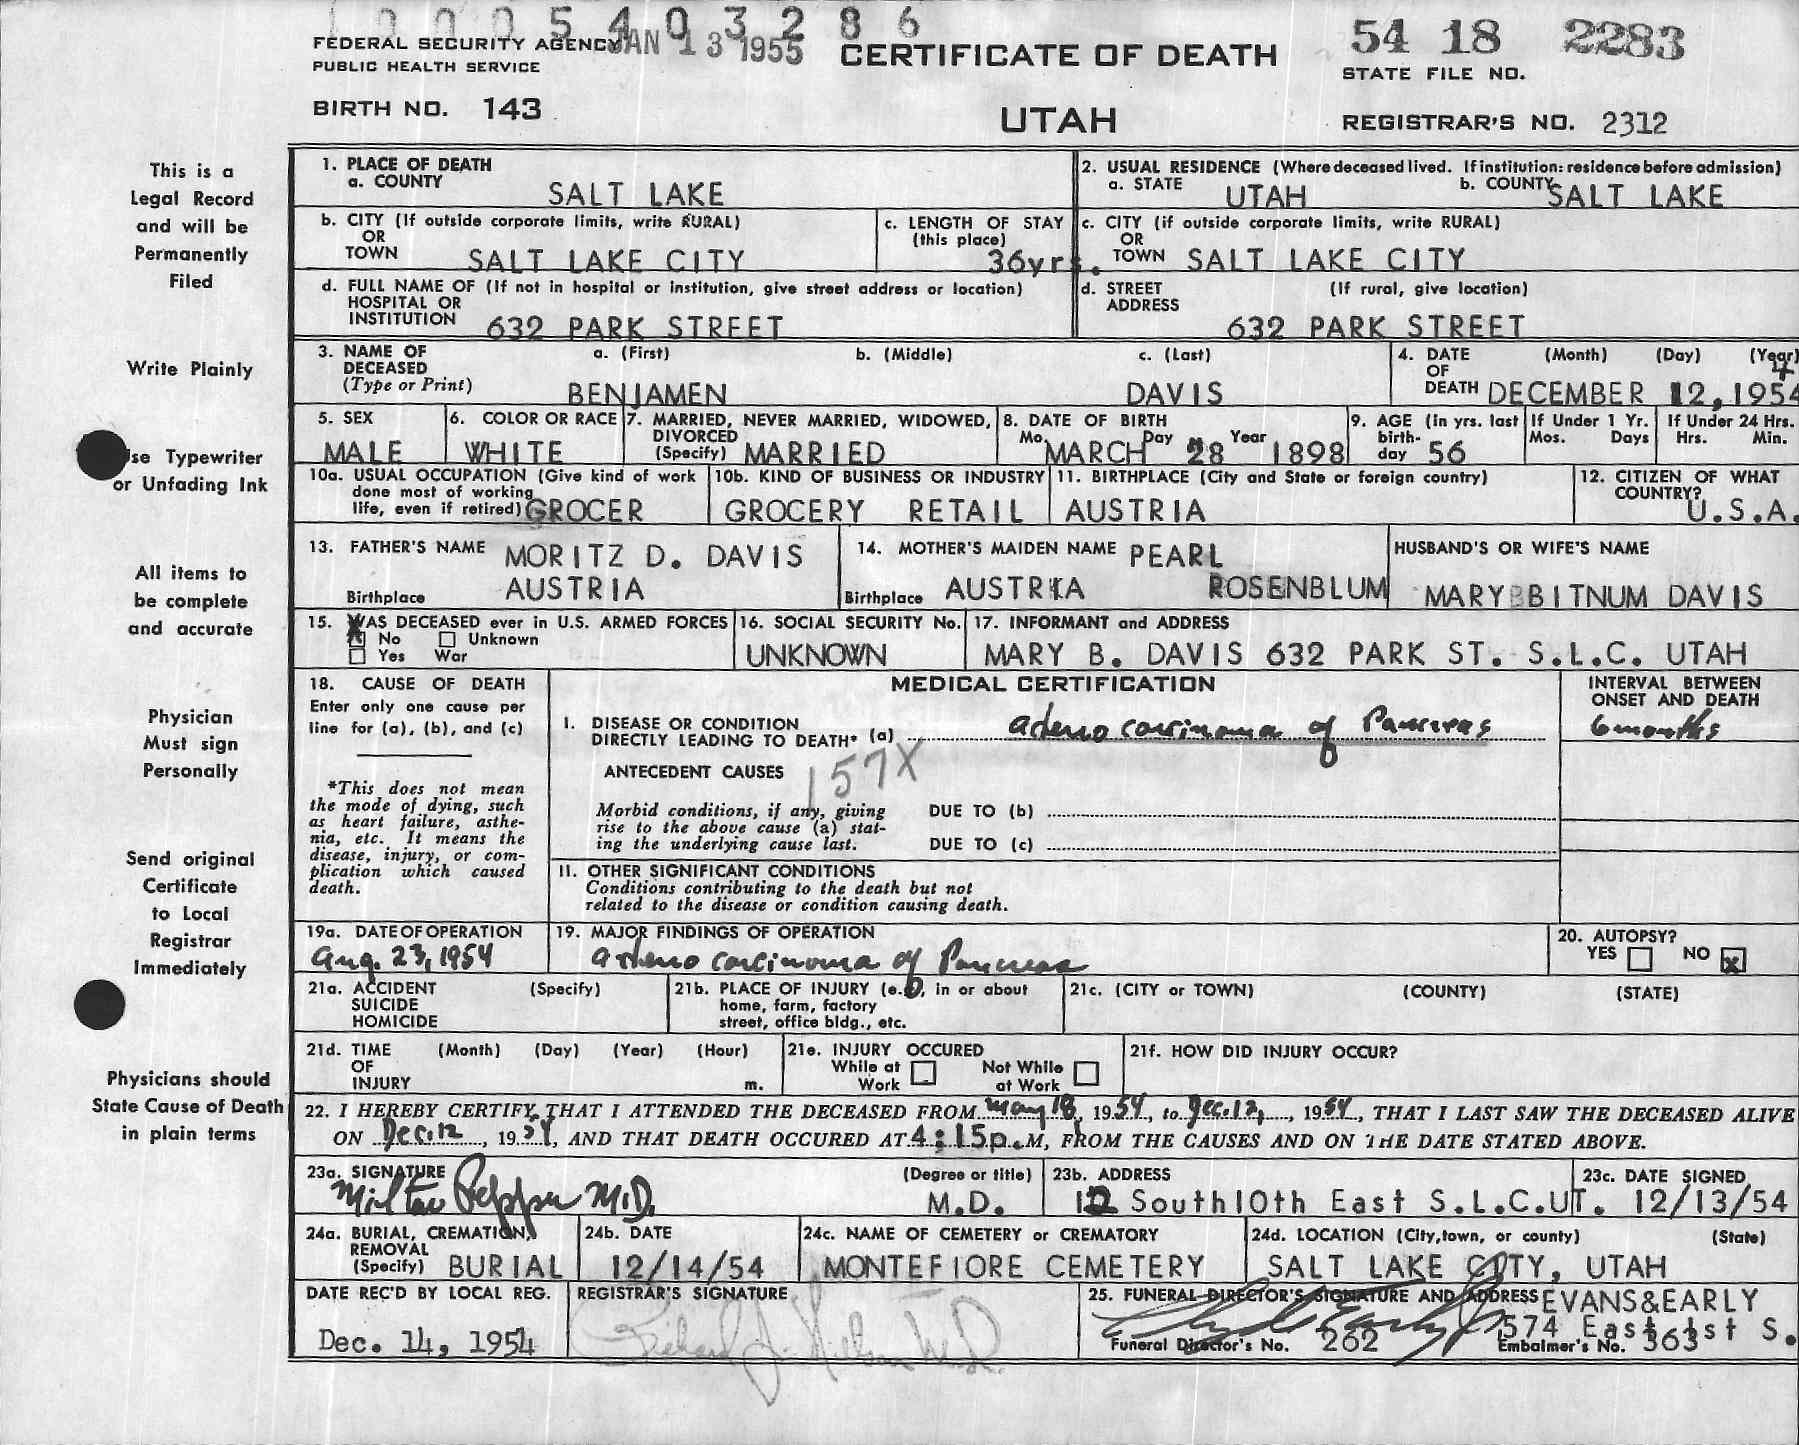 1 0 0 0 5 4 0 3 2 8 6
FEDERAL SECURITY AGENCY JAN 13 1955 CERTIFICATE OF DEATH 54 18 2283
PUBLIC HEALTH SERVICE STATE FILE NO.
BIRTH NO. 143 UTAH REGISTRAR'S NO. 2312
This is a
Legal Record
and will be
Permanently
Filed
1. PLACE OF DEATH
a. COUNTY SALT LAKE
2. USUAL RESIDENCE (Where deceased lived. If institution: residence before admission)
a. STATE UTAH b. COUNTY SALT LAKE
b. CITY (If outside corporate limits, write RURAL)
OR
TOWN SALT LAKE CITY
c. LENGTH OF STAY
(this place)
36yrs.
c. CITY (if outside corporate limits, write RURAL)
OR
TOWN SALT LAKE CITY
d. FULL NAME OF (If not in hospital or institution, give street address or location)
HOSPITAL OR
INSTITUTION 632 PARK STREET
d. STREET (If rural, give location)
ADDRESS
632 PARK STREET
Write Plainly
3. NAME OF a. (First) b. (Middle) c. (Last)
DECEASED
(Type or Print) BENJAMEN DAVIS
4. DATE (Month) (Day) (Year)
OF 4
DEATH DECEMBER 12, 1954
Use Typewriter
or Unfading Ink
5. SEX
MALE
6. COLOR OR RACE
WHITE
7. MARRIED, NEVER MARRIED, WIDOWED,
DIVORCED
(Specify) MARRIED
8. DATE OF BIRTH
Mo. Day Year
MARCH 28 1898
9. AGE (In yrs. last
birth-
day 56
If Under 1 Yr.
Mos. Days
If Under 24 Hrs.
Hrs. Min.
10a. USUAL OCCUPATION (Give kind of work
done most of working
life, even if retired) GROCER
10b. KIND OF BUSINESS OR INDUSTRY
GROCERY RETAIL
11. BIRTHPLACE (City and State or foreign country)
AUSTRIA
12. CITIZEN OF WHAT
COUNTRY?
U.S.A.
All items to
be complete
and accurate
13. FATHER'S NAME MORITZ D. DAVIS
Birthplace AUSTRIA
14. MOTHER'S MAIDEN NAME PEARL
ROSENBLUM
Birthplace AUSTRIA
HUSBAND'S OR WIFE'S NAME
MARY BITNUM DAVIS
15. WAS DECEASED ever in U.S. ARMED FORCES
X No Unknown
Yes War
16. SOCIAL SECURITY No.
UNKNOWN
17. INFORMANT and ADDRESS
MARY B. DAVIS 632 PARK ST. S.L.C. UTAH
Physician
Must sign
Personally
18. CAUSE OF DEATH
Enter only one cause per
line for (a), (b), and (c)
*This does not mean
the mode of dying, such
as heart failure, asthe-
nia, etc. It means the
disease, injury, or com-
plication which caused
death.
MEDICAL CERTIFICATION
INTERVAL BETWEEN
ONSET AND DEATH
I. DISEASE OR CONDITION
DIRECTLY LEADING TO DEATH* (a) adeno carcinoma of Pancreas 6 months
ANTECEDENT CAUSES 157X
Morbid conditions, if any, giving
rise to the above cause (a) stat-
ing the underlying cause last.
DUE TO (b)
DUE TO (c)
II. OTHER SIGNIFICANT CONDITIONS
Conditions contributing to the death but not
related to the disease or condition causing death.
Send original
Certificate
to Local
Registrar
Immediately
19a. DATE OF OPERATION
Aug. 23, 1954
19. MAJOR FINDINGS OF OPERATION
adeno carcinoma of Pancreas
20. AUTOPSY?
YES NO X
21a. ACCIDENT (Specify)
SUICIDE
HOMICIDE
21b. PLACE OF INJURY (e.g., in or about
home, farm, factory
street, office bldg., etc.
21c. (CITY or TOWN) (COUNTY) (STATE)
21d. TIME (Month) (Day) (Year) (Hour)
OF
INJURY m.
21e. INJURY OCCURED
While at Not While
Work at Work
21f. HOW DID INJURY OCCUR?
Physicians should
State Cause of Death
in plain terms
22. I HEREBY CERTIFY THAT I ATTENDED THE DECEASED FROM May 18, 1954, to Dec. 12, 1954, THAT I LAST SAW THE DECEASED ALIVE
ON Dec. 12, 1954, AND THAT DEATH OCCURED AT 4:15p.M, FROM THE CAUSES AND ON THE DATE STATED ABOVE.
23a. SIGNATURE (Degree or title)
Milton Pepper M.D. M.D.
23b. ADDRESS
12 South10th East S.L.C.UT.
23c. DATE SIGNED
12/13/54
24a. BURIAL, CREMATION,
REMOVAL
(Specify) BURIAL
24b. DATE
12/14/54
24c. NAME OF CEMETERY or CREMATORY
MONTEFIORE CEMETERY
24d. LOCATION (City, town, or county) (State)
SALT LAKE CITY, UTAH
DATE REC'D BY LOCAL REG.
Dec. 14, 1954
REGISTRAR'S SIGNATURE
Richard J. Nelson M.D.
25. FUNERAL DIRECTOR'S SIGNATURE AND ADDRESS EVANS&EARLY
574 East 1st S.
Funeral Director's No. 262 Embalmer's No. 363